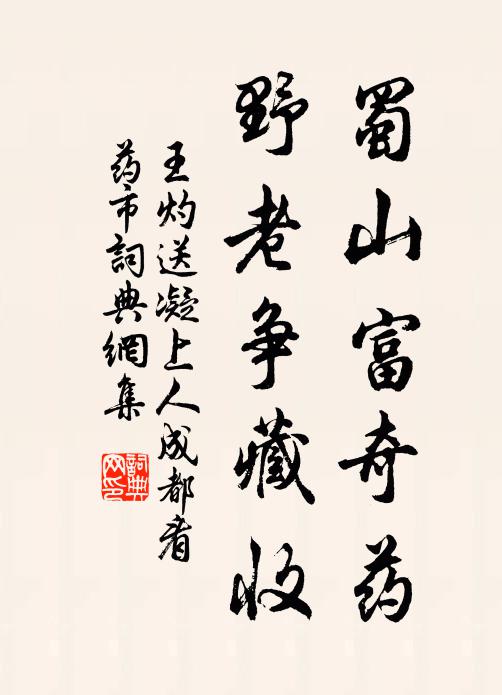 蜀山富奇药
野老争藏收
王灼送凝上人成都看
药市词典網集
詞典
网印